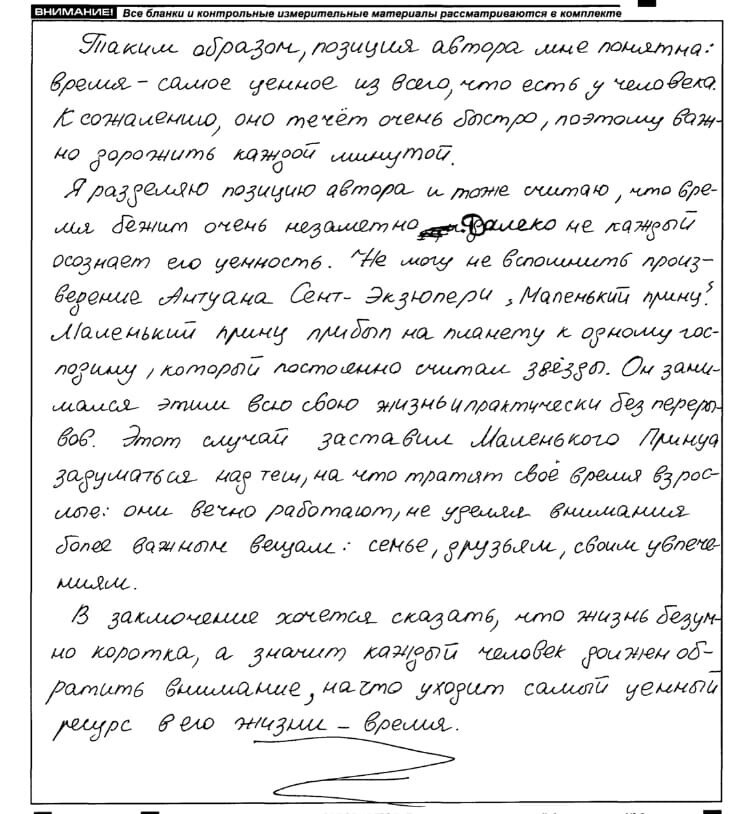 ВНИМАНИЕ! Все бланки и контрольные измерительные материалы рассматриваются в комплекте
Таким образом, позиция автора мне понятна:
время – самое ценное из всего, что есть у человека.
К сожалению, оно течёт очень быстро, поэтому важ-
но дорожить каждой минутой.
Я разделяю позицию автора и тоже считаю, что вре-
мя бежит очень незаметно. Далеко не каждый
осознает его ценность. Не могу не вспомнить произ-
ведение Антуана Сент-Экзюпери „Маленький принц".
Маленький принц прибыл на планету к одному гос-
подину, который постоянно считал звёзды. Он зани-
мался этим всю свою жизнь и практически без переры-
вов. Этот случай заставил Маленького Принца
задуматься над тем, на что тратят своё время взрос-
лые: они вечно работают, не уделяя внимания
более важным вещам: семье, друзьям, своим увлече-
ниям.
В заключение хочется сказать, что жизнь безум-
но коротка, а значит каждый человек должен об-
ратить внимание, на что уходит самый ценный
ресурс в его жизни – время.